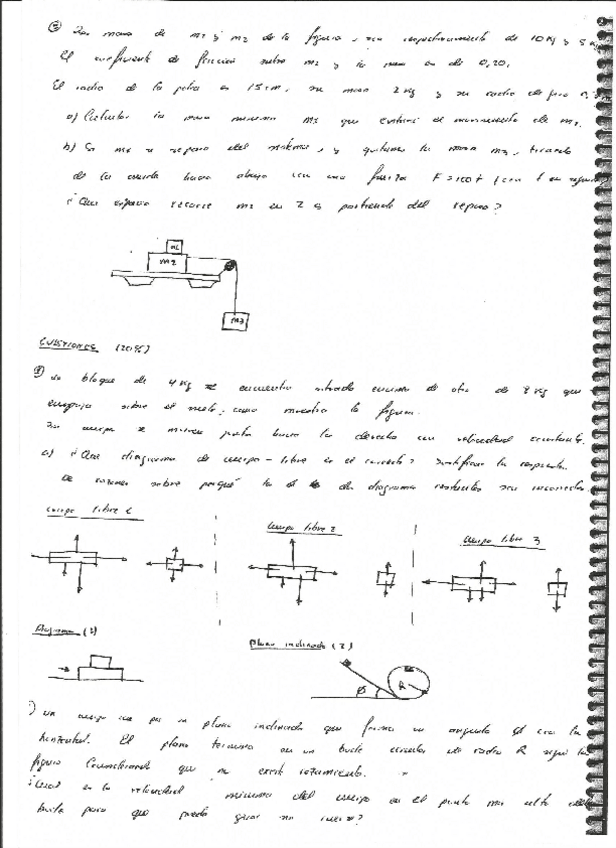 Las masas de m1 y m2 de la figura, son respectivamente de 10 Kg y 5
El coeficiente de fricción entre m2 y la mesa es de 0,20.
El radio de la polea es 15 cm, su masa 2 Kg y su radio de giro
a) Calcular la masa mínima m3 que evitará el movimiento de
b) Si m1 se separa del sistema, y quitamos la masa m3, tirando
de la cuerda hacia abajo con una fuerza F=100t (con t en
¿Que espacio recorre m2 en 2 s partiendo del reposo?
m1
m2
m3
CUESTIONES (20%)
1) Un bloque de 4 Kg se encuentra situado encima de otro de 8 Kg que
empuja sobre el suelo, como muestra la figura.
a) ¿Que diagrama de cuerpo-libre es el correcto? Justificar la respuesta.
Da razones sobre porqué los diagramas restantes son incorrectos
Cuerpo libre 1
Cuerpo libre 2
Cuerpo libre 3
Diagrama (1)
Plano inclinado (2)
R
Ø
Un cuerpo cae por un plano inclinado que forma un angulo Ø con la
horizontal. El plano termina en un bucle circular de radio R según la
figura (considerando que no existe rozamiento.
¿Cual es la velocidad mínima del cuerpo en el punto mas alto del
bucle para que pueda girar sin caerse?